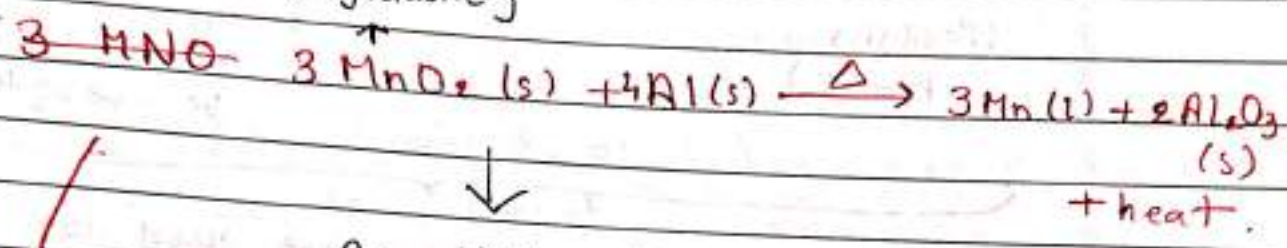 3 MNO 3 MnO₂ (s) + 4Al(s) —Δ→ 3Mn (l) + 2Al₂O₃
(s)
+ heat.